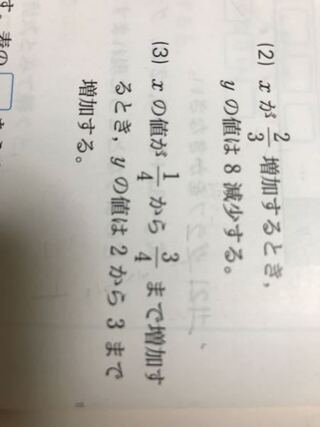 (2) xが2/3増加するとき,
yの値は8減少する。
(3) xの値が1/4から3/4まで増加す
るとき, yの値は2から3まで
増加する。